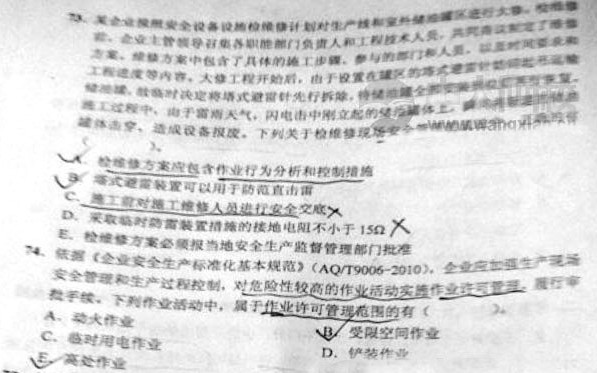 73. 某企业按照安全设备设施检维修计划对生产线和室外储油罐区进行大修。检维修
前，企业主管领导召集各职能部门负责人和工程技术人员，共同商议制定了维修
方案。维修方案中包含了具体的施工步骤、参与的部门和人员、以及时间要求和
工程进度等内容。大修工程开始后，由于设置在罐区的塔式避雷针
储油罐，故临时决定将塔式避雷针先行拆除，待储油罐
施工过程中，由于雷雨天气，闪电击中刚立起的储油罐体上，
罐体击穿，造成设备报废。下列关于检维修现场安全
（ ）。
A. 检维修方案应包含作业行为分析和控制措施
B. 塔式避雷装置可以用于防范直击雷
C. 施工前对施工维修人员进行安全交底
D. 采取临时防雷装置措施的接地电阻不小于15Ω
E. 检维修方案必须报当地安全生产监督管理部门批准
74. 依据《企业安全生产标准化基本规范》（AQ/T9006-2010），企业应加强生产现场
安全管理和生产过程控制，对危险性较高的作业活动实施作业许可管理，履行审
批手续。下列作业活动中，属于作业许可管理范围的有（ ）。
A. 动火作业 B. 受限空间作业
C. 临时用电作业 D. 铲装作业
E. 高处作业